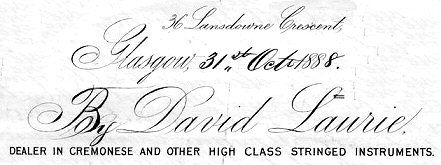 36 Lansdowne Crescent,
Glasgow, 31st Oct 1888.
By David Laurie.
DEALER IN CREMONESE AND OTHER HIGH CLASS STRINGED INSTRUMENTS.